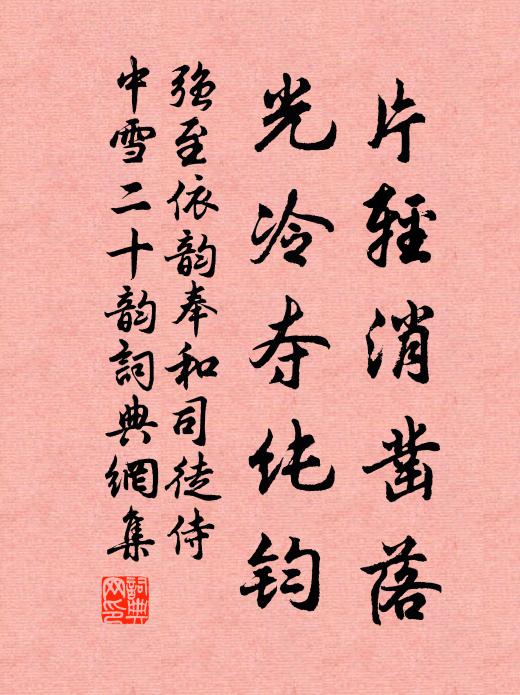 片輕消凿落
光冷夺纯钧
强至依韵奉和司徒侍
中雪二十韵詞典網集